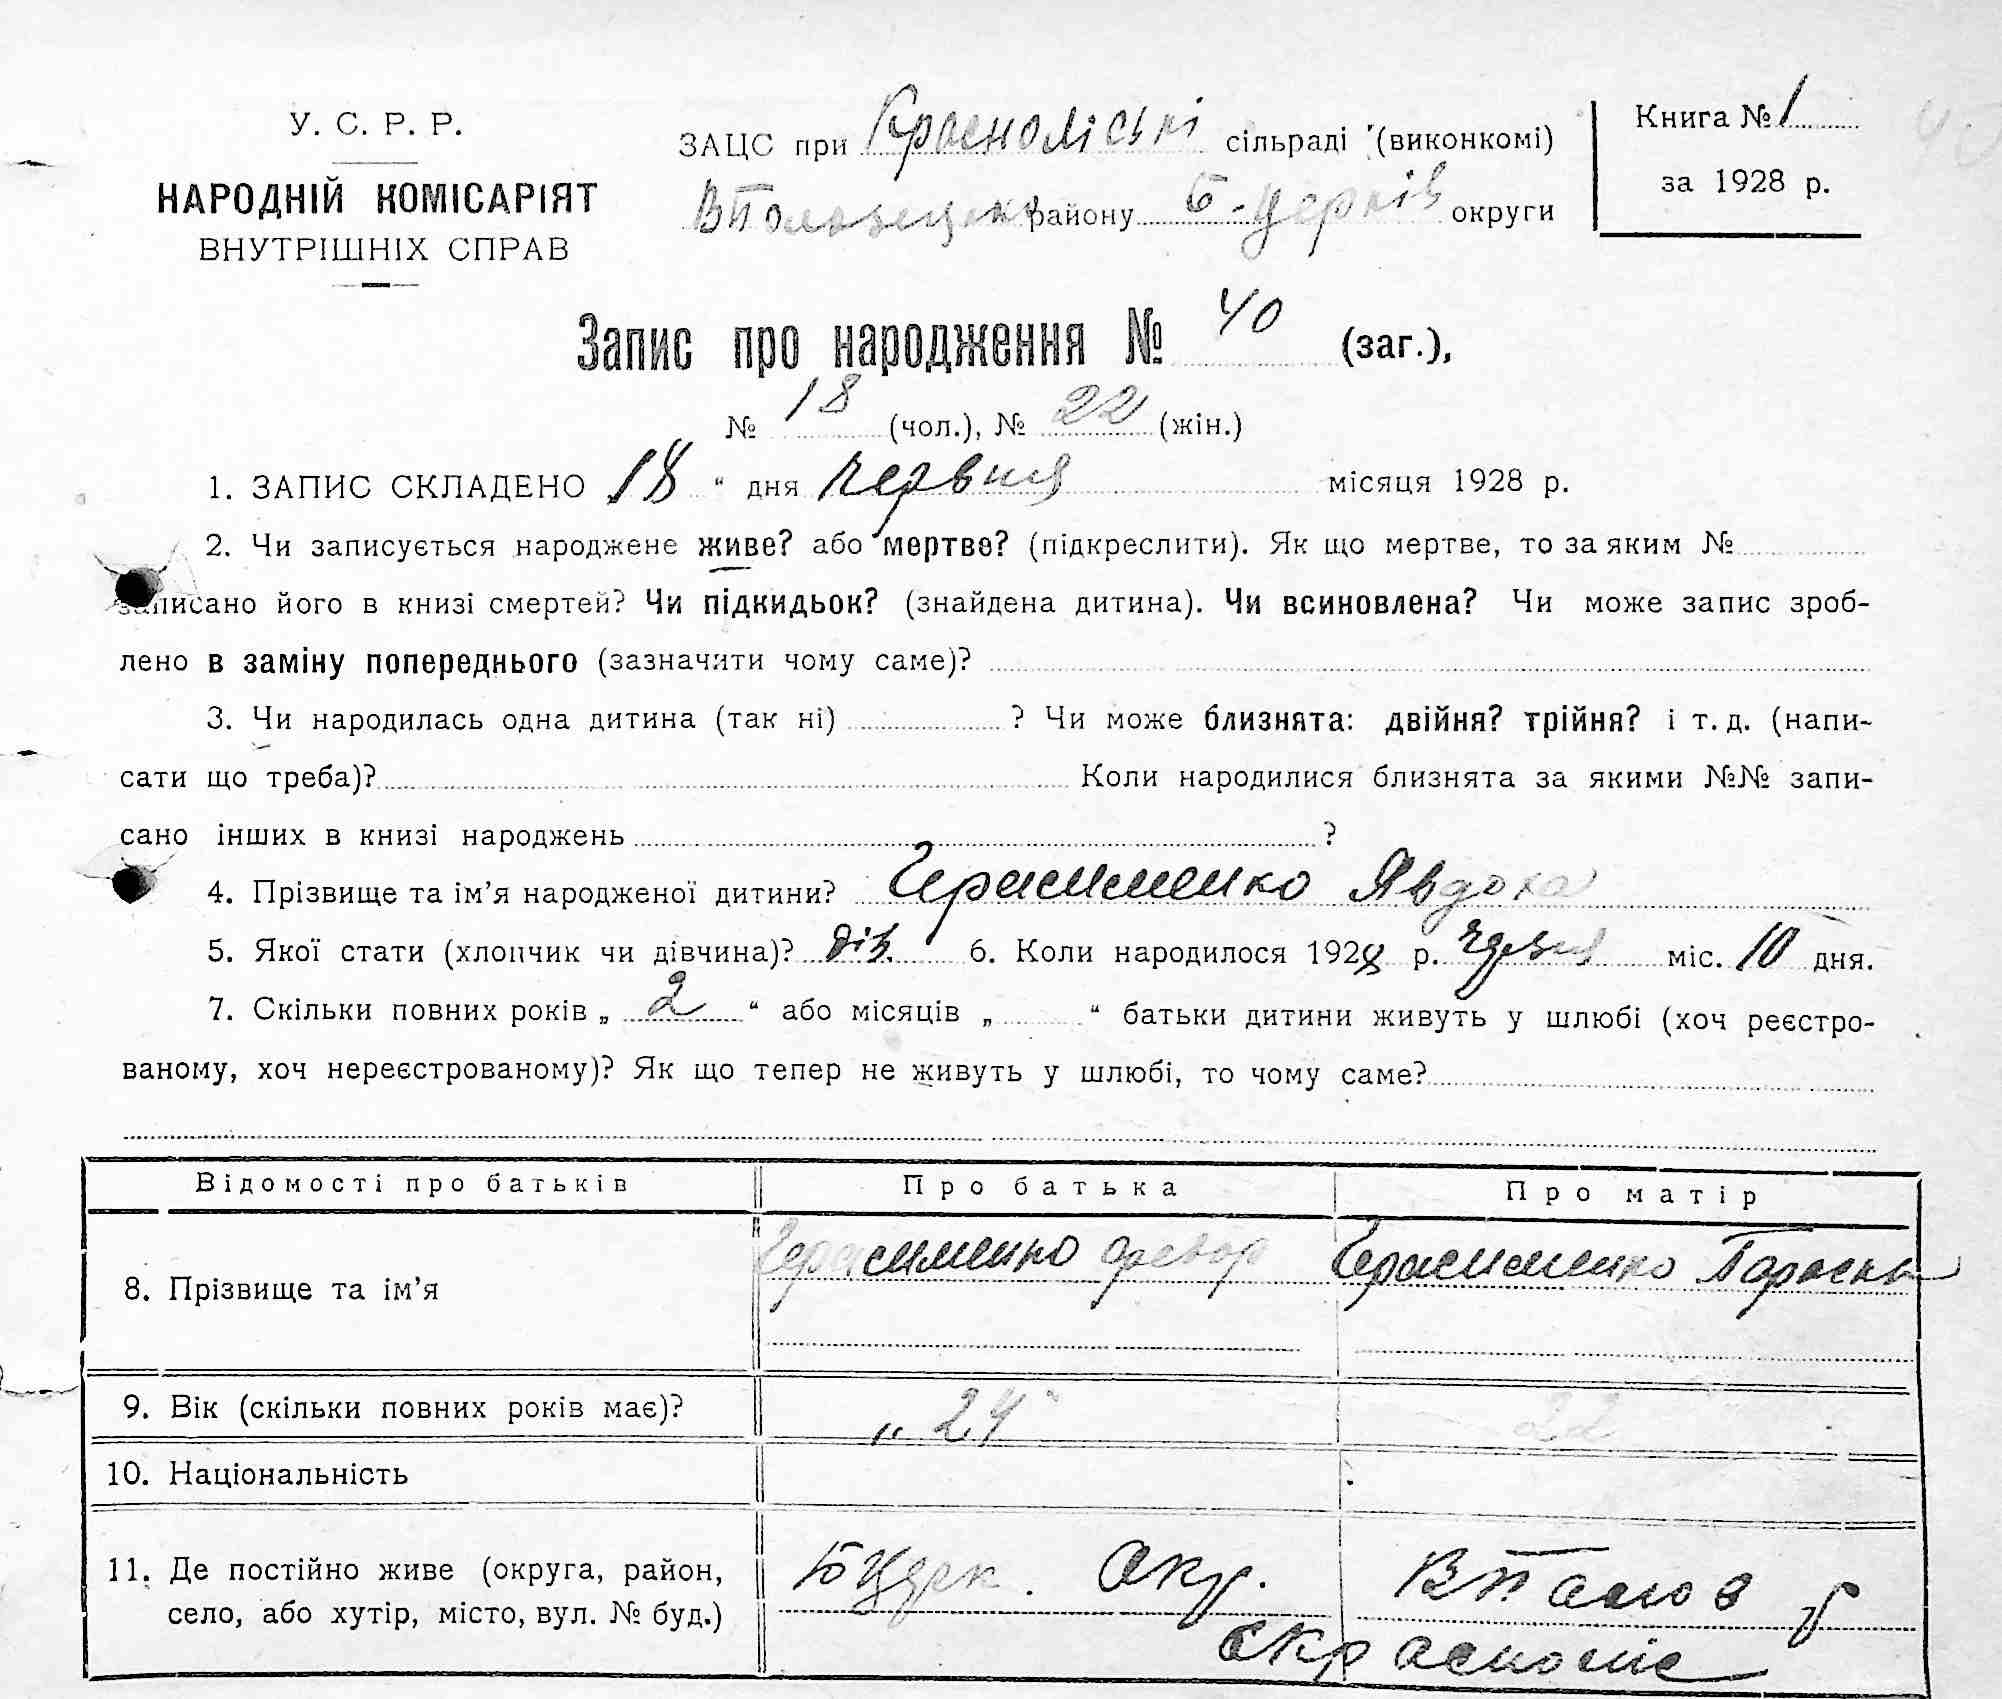 У. С. Р. Р.
НАРОДНІЙ КОМІСАРІЯТ
ВНУТРІШНІХ СПРАВ
ЗАЦС при Красноліські сільраді (виконкомі)
району Б-Церків округи
Книга № 1
за 1928 р.
Запис про народження № 40 (заг.),
№ 18 (чол.), № 22 (жін.)
1. ЗАПИС СКЛАДЕНО 18 “ дня червня місяця 1928 р.
2. Чи записується народжене живе? або мертве? (підкреслити). Як що мертве, то за яким №
записано його в книзі смертей? Чи підкидьок? (знайдена дитина). Чи всиновлена? Чи може запис зроб-
лено в заміну попереднього (зазначити чому саме)?
3. Чи народилась одна дитина (так ні) ? Чи може близнята: двійня? трійня? і т. д. (напи-
сати що треба)? Коли народилися близнята за якими №№ запи-
сано інших в книзі народжень ?
4. Прізвище та ім’я народженої дитини? Герасименко Явдоха
5. Якої стати (хлопчик чи дівчина)? дів. 6. Коли народилося 1928 р. червня міс. 10 дня.
7. Скільки повних років „ 2 “ або місяців „ “ батьки дитини живуть у шлюбі (хоч реєстро-
ваному, хоч нереєстрованому)? Як що тепер не живуть у шлюбі, то чому саме?
Відомості про батьків Про батька Про матір
8. Прізвище та ім’я Герасименко Федор Герасименко Параска
9. Вік (скільки повних років має)? „ 24 “ 22
10. Національність
11. Де постійно живе (округа, район,
село, або хутір, місто, вул. № буд.)
БЦерк. Окр.
с Красноліс